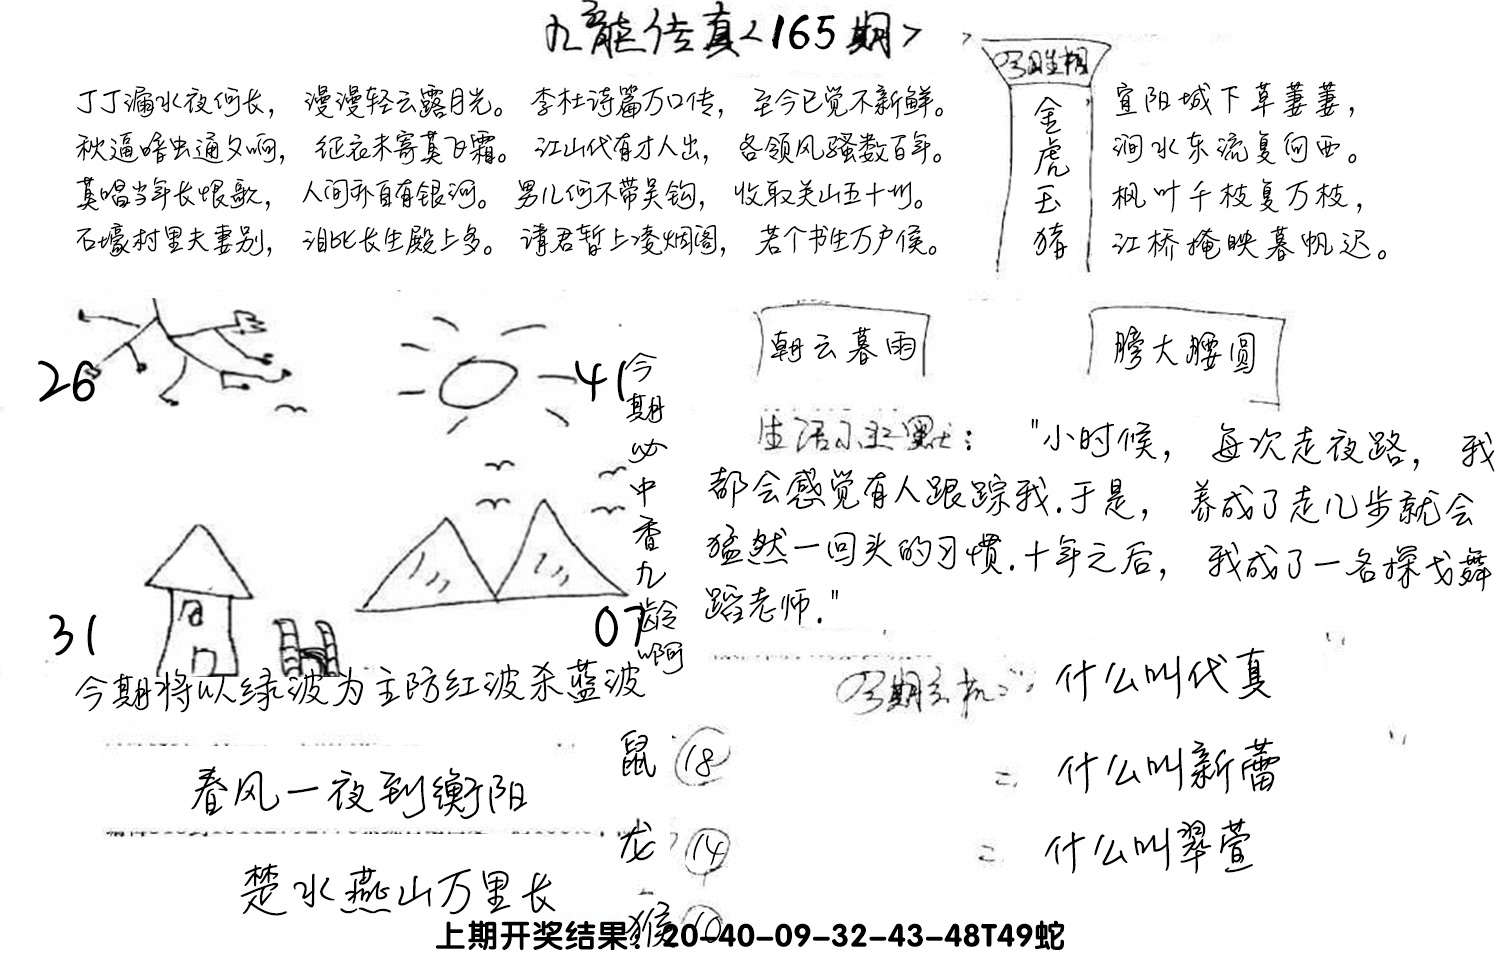 九龙传真<165期>
丁丁漏水夜何长，漫漫轻云露月光。李杜诗篇万口传，至今已觉不新鲜。
秋逼暗虫通夕响，征衣未寄莫飞霜。江山代有才人出，各领风骚数百年。
莫唱当年长恨歌，人间亦自有银河。男儿何不带吴钩，收取关山五十州。
石壕村里夫妻别，泪比长生殿上多。请君暂上凌烟阁，若个书生万户侯。
今期生相
金虎玉猪
宜阳城下草萋萋，
涧水东流复向西。
枫叶千枝复万枝，
江桥掩映暮帆迟。
26
41
31
07
今期必中香九龄啊
朝云暮雨
膀大腰圆
生活小幽默："小时候，每次走夜路，我
都会感觉有人跟踪我.于是，养成了走几步就会
猛然一回头的习惯.十年之后，我成了一名探戈舞
蹈老师."
今期将以绿波为主防红波杀蓝波
春风一夜到衡阳
楚水燕山万里长
鼠 18
龙 14
猴 10
今期玄机：什么叫代真
= 什么叫新蕾
= 什么叫翠萱
上期开奖结果：20-40-09-32-43-48T49蛇